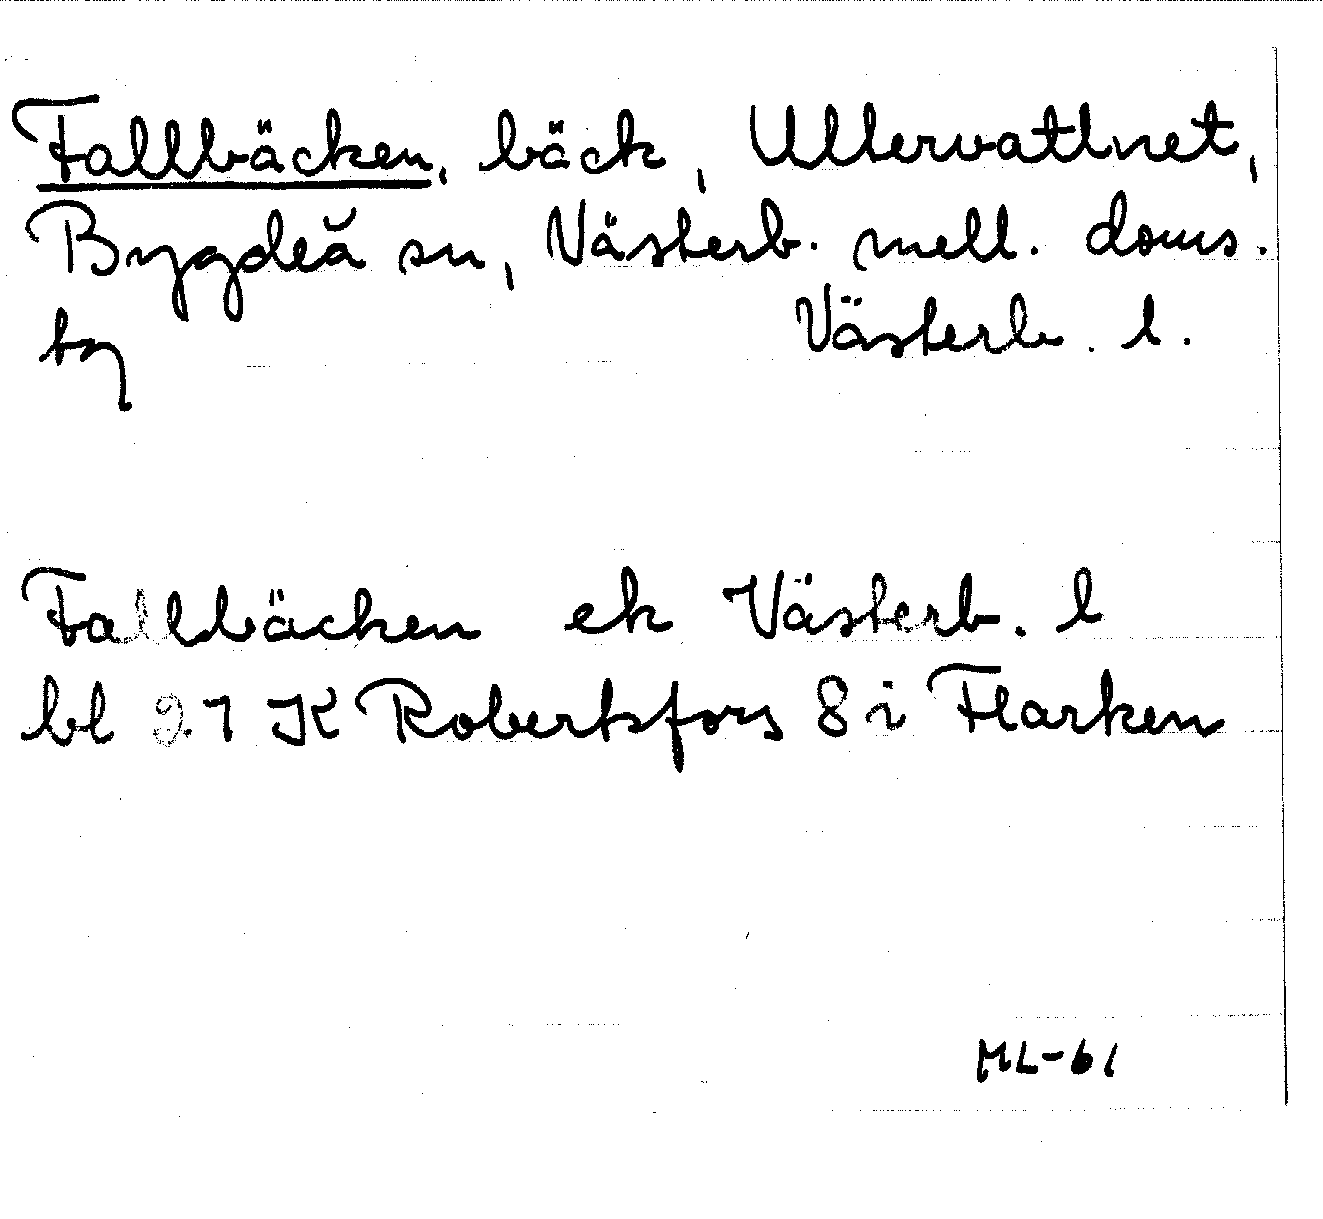 Fallbäcken, bäck, Ullervattnet,
Bygdeå sn, Västerb. mell. doms.
tg Västerb. l.
Fallbäcken ek Västerb. l
bl 21 K Robertsfors 8 i Flarken
ML-61